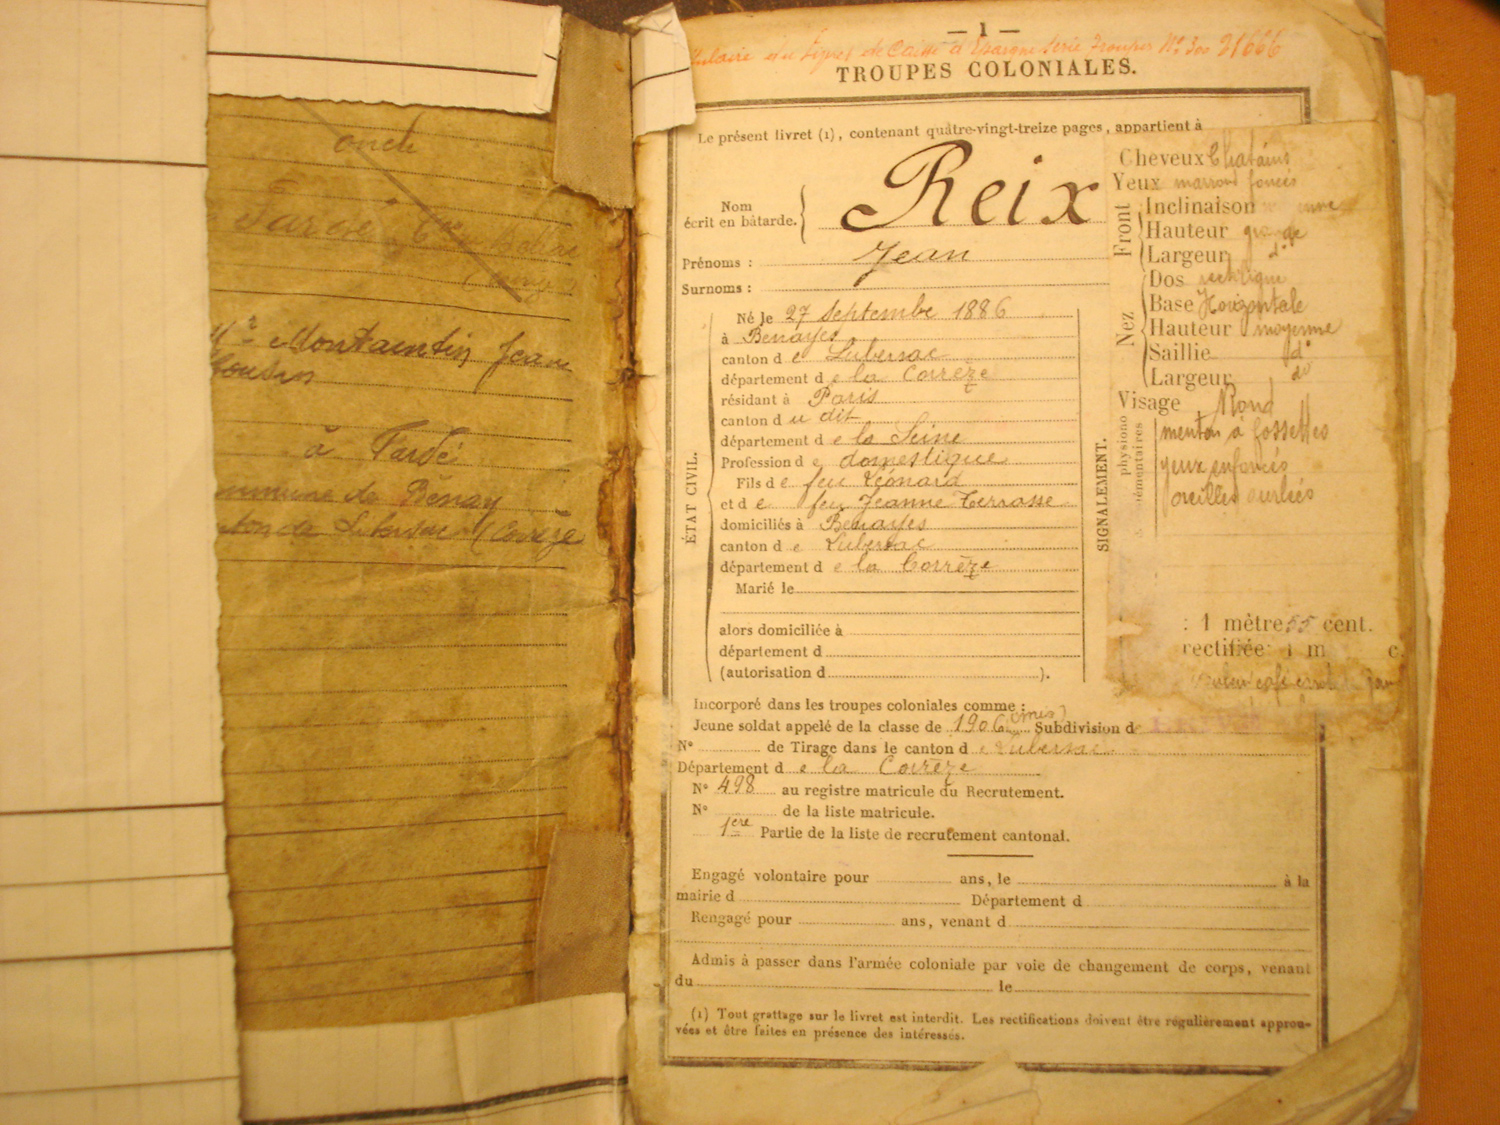 oncle
Tardé
Mr Montaintin Jean
Cousin
à Tardé
commune de Bénay
canton de Lubersac (Corrèze
— 1 —
titulaire du livret de Caisse d'Epargne série Troupes No 300 21666
TROUPES COLONIALES.
Le présent livret (1), contenant quatre-vingt-treize pages, appartient à
Nom
écrit en bâtarde. Reix
Prénoms : Jean
Surnoms :
ÉTAT CIVIL.
Né le 27 Septembre 1886
à Benayes
canton de Lubersac
département de la Corrèze
résidant à Paris
canton du dit
département de la Seine
Profession de domestique
Fils de feu Léonard
et de feu Jeanne Terrasse
domiciliés à Benayes
canton de Lubersac
département de la Corrèze
Marié le
alors domiciliée à
département d
(autorisation d ).
SIGNALEMENT.
Cheveux Chatains
Yeux marrons foncés
Front
Inclinaison
Hauteur grande
Largeur do
Nez
Dos rectiligne
Base Horizontale
Hauteur moyenne
Saillie do
Largeur do
Visage Rond
physiono
menton à fossettes
yeux enfoncés
oreilles ourlées
: 1 mètre 55 cent.
rectifiée: 1 m c.
Incorporé dans les troupes coloniales comme :
Jeune soldat appelé de la classe de 1906 Subdivision d
No de Tirage dans le canton de Lubersac
Département de la Corrèze
No 498 au registre matricule du Recrutement.
No de la liste matricule.
1ere Partie de la liste de recrutement cantonal.
Engagé volontaire pour ans, le à la
mairie d Département d
Rengagé pour ans, venant d
Admis à passer dans l'armée coloniale par voie de changement de corps, venant
du le
(1) Tout grattage sur le livret est interdit. Les rectifications doivent être régulièrement approu-
vées et être faites en présence des intéressés.